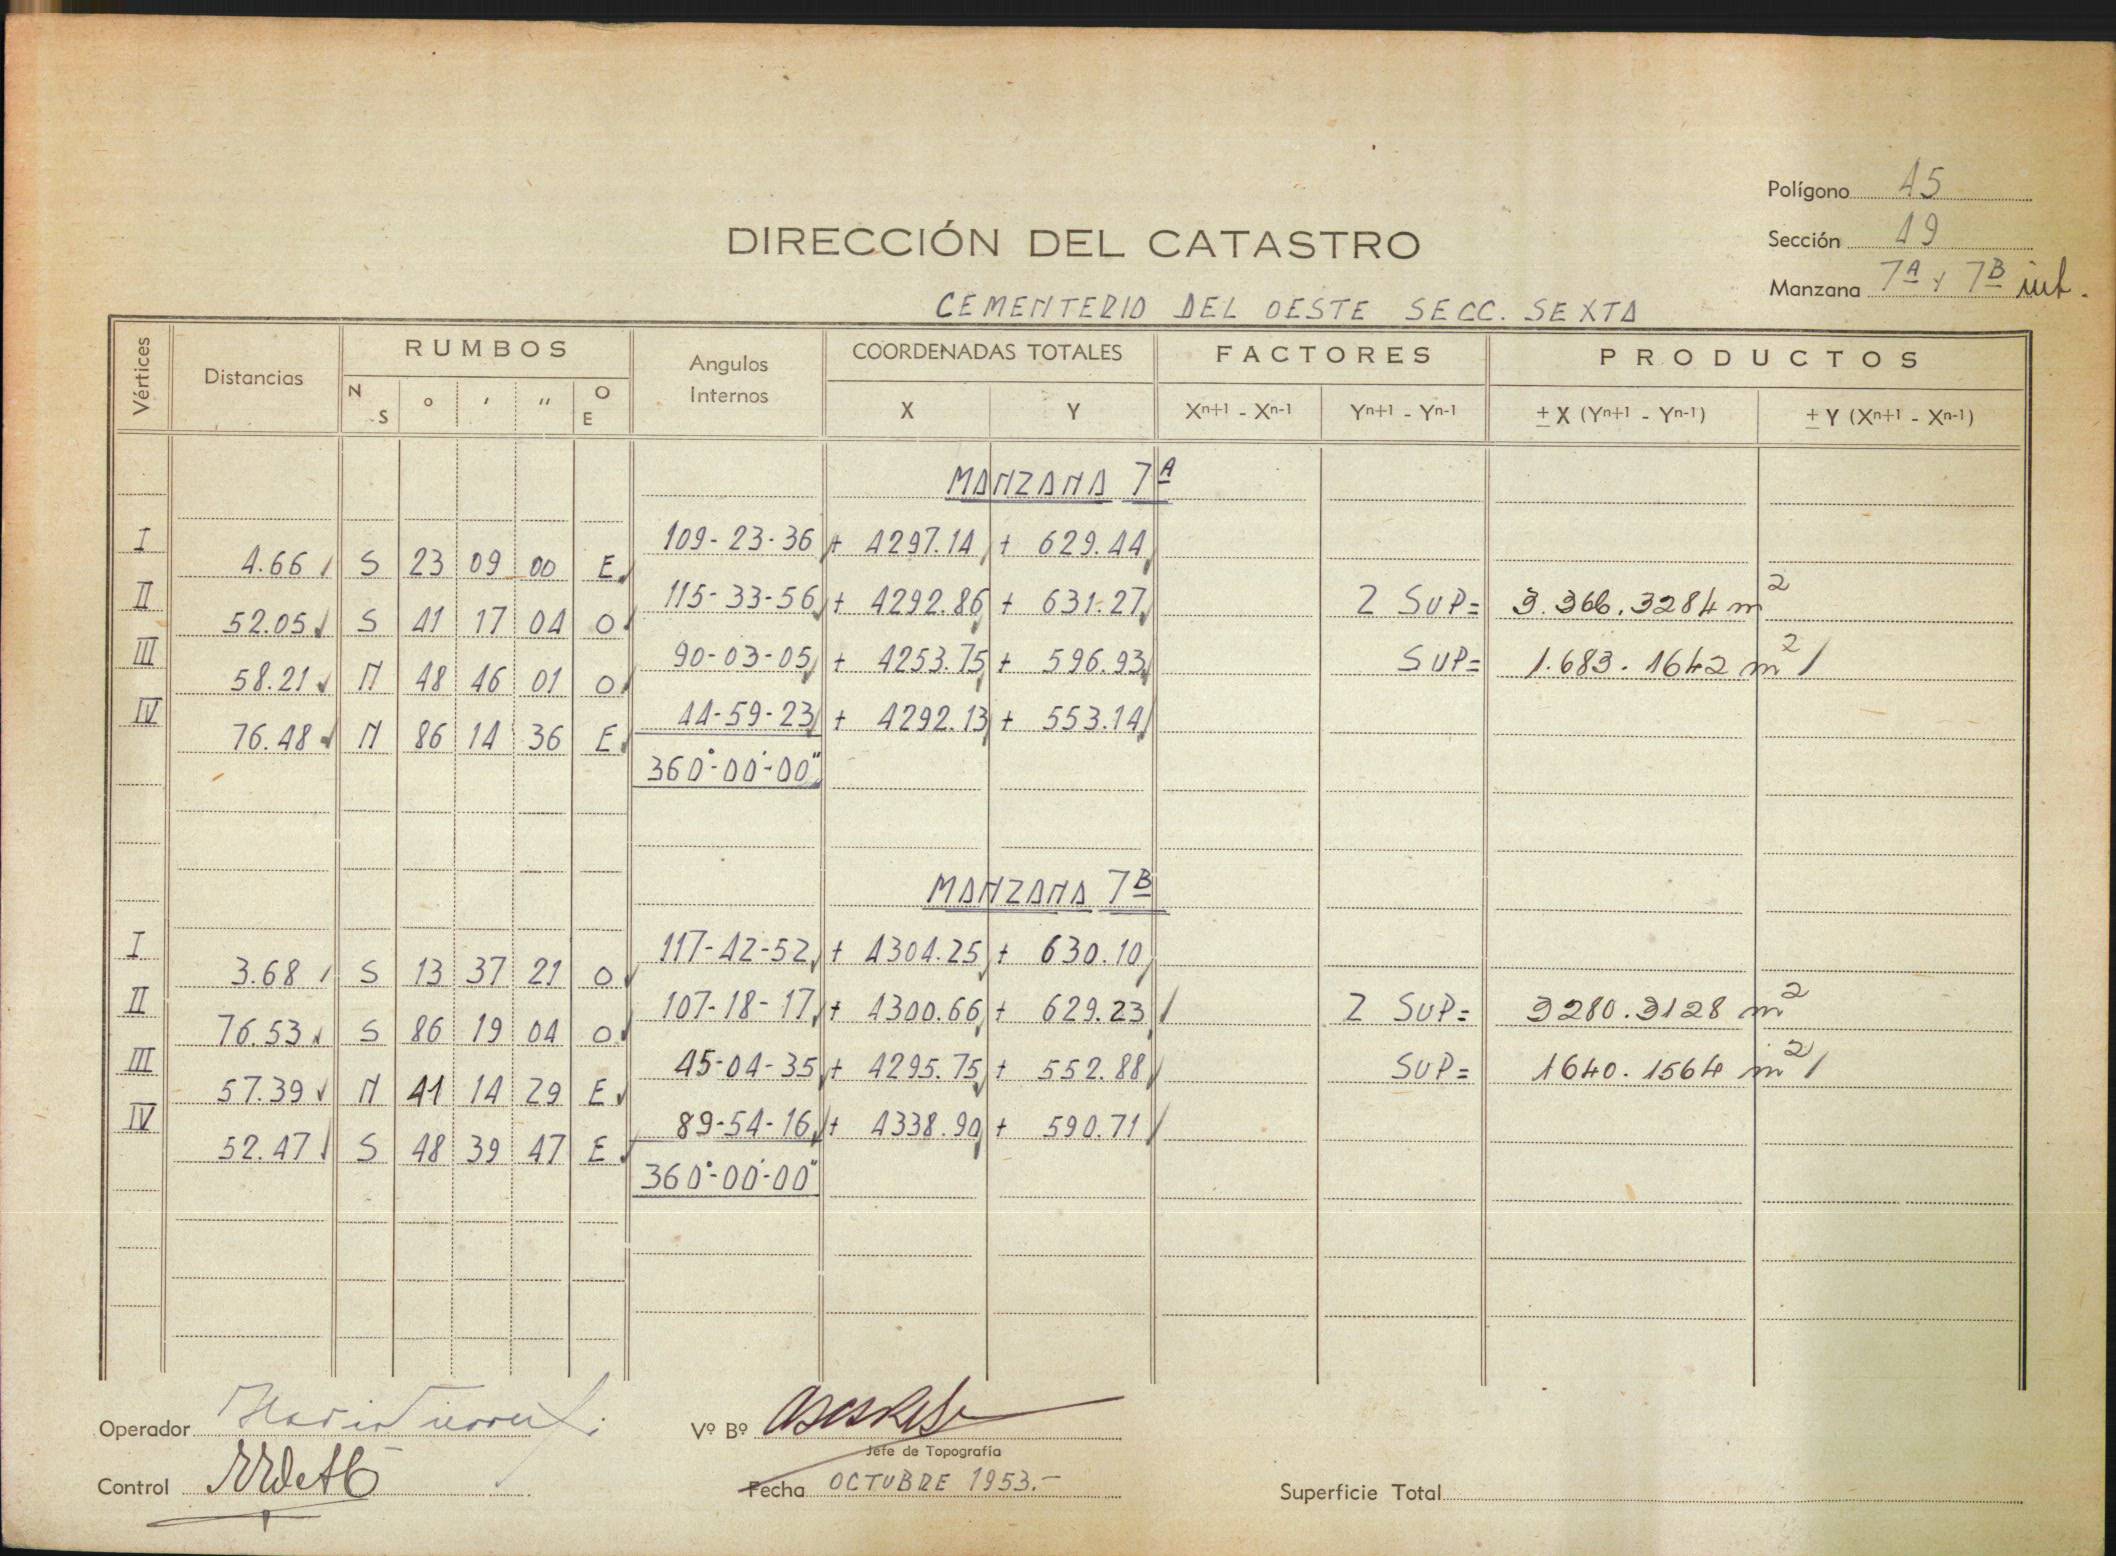 Polígono 45
Sección 19
Manzana 7A y 7B int.
DIRECCIÓN DEL CATASTRO
CEMENTERIO DEL OESTE SECC. SEXTA
Vértices Distancias RUMBOS Angulos Internos COORDENADAS TOTALES FACTORES PRODUCTOS
N S ° ′ ″ O E X Y Xn+1 - Xn-1 Yn+1 - Yn-1 ± X (Yn+1 - Yn-1) ± Y (Xn+1 - Xn-1)
MANZANA 7A
I 109-23-36 + 4297.14 + 629.44
4.66 S 23 09 00 E
II 115-33-56 + 4292.86 + 631.27 2 SUP= 3.366.3284 m2
52.05 S 41 17 04 O
III 90-03-05 + 4253.75 + 596.93 SUP= 1.683.1642 m2
58.21 N 48 46 01 O
IV 44-59-23 + 4292.13 + 553.14
76.48 N 86 14 36 E
360°-00'-00"
MANZANA 7B
I 117-42-52 + 4304.25 + 630.10
3.68 S 13 37 21 O
II 107-18-17 + 4300.66 + 629.23 2 SUP= 3280.3128 m2
76.53 S 86 19 04 O
III 45-04-35 + 4295.75 + 552.88 SUP= 1640.1564 m2
57.39 N 41 14 29 E
IV 89-54-16 + 4338.90 + 590.71
52.47 S 48 39 47 E
360°-00'-00"
Operador
Vº Bº
Jefe de Topografía
Control
Fecha OCTUBRE 1953.-
Superficie Total